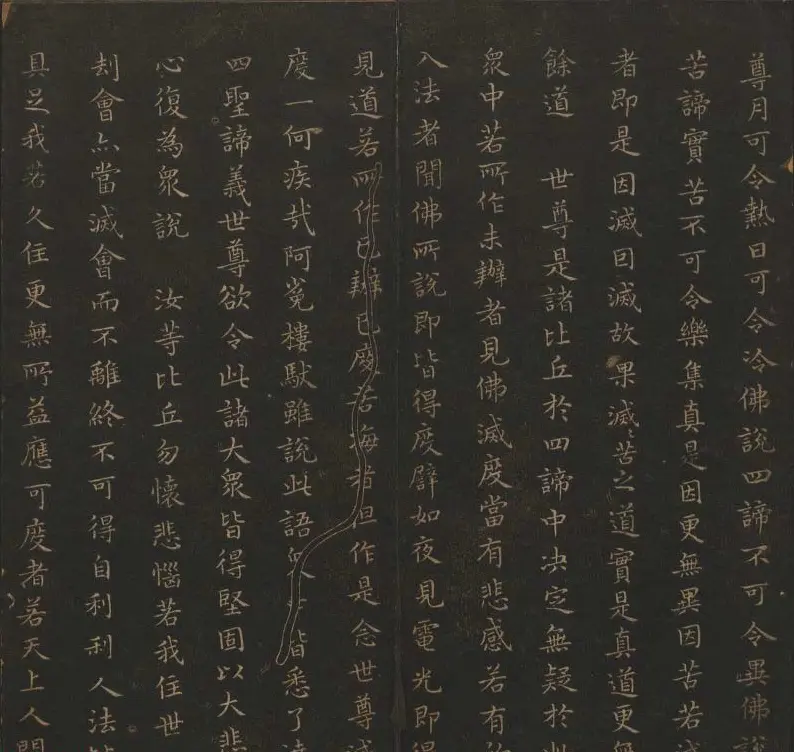 尊月可令熱日可令冷佛說四諦不可令異佛說
苦諦實苦不可令樂集真是因更無異因苦若
者即是因滅囙滅故果滅〻苦之道實是真道更
餘道 世尊是諸比丘於四諦中决定無疑於
眾中若所作未辦者見佛滅度當有悲感若有
入法者聞佛所說即皆得度譬如夜見電光即得
見道若所作已辦已度苦海者但作是念世尊
度一何疾哉阿㝹樓馱雖說此語眾皆悉了
四聖諦義世尊欲令此諸大眾皆得堅固以大悲
心復為眾說 汝等比丘勿懷悲惱若我住世
刧會亦當滅會而不離終不可得自利利人法
具足我若久住更無所益應可度者若天上人間